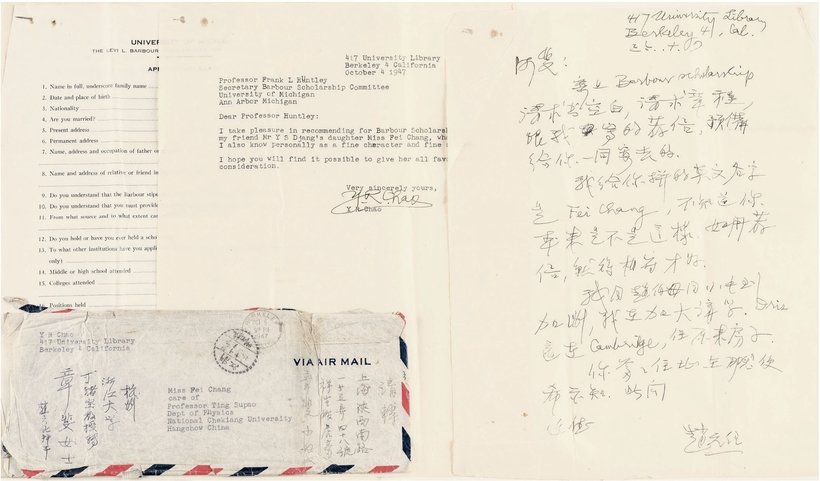 UNIVER
THE LEVI L. BARBOUR
1. Name in full, underscore family name
2. Date and place of birth
3. Nationality
4. Are you married?
5. Present address
6. Permanent address
7. Name, address and occupation of father or
8. Name and address of relative or friend in
9. Do you understand that the Barbour stipe
10. Do you understand that you must provide
11. From what source and to what extent can
12. Do you hold or have you ever held a scho
13. To what other institutions have you appli
only)
14. Middle or high school attended
15. Colleges attended
16. Positions held
417 University Library
Berkeley 4 California
October 4 1947
Professor Frank L Huntley
Secretary Barbour Scholarship Committee
University of Michigan
Ann Arbor Michigan
Dear Professor Huntley:
I take pleasure in recommending for Barbour Scholarsh
my friend Mr Y S Djang's daughter Miss Fei Chang, who
I also know personally as a fine character and fine
I hope you will find it possible to give her all favo
consideration.
Very sincerely yours,
Y R Chao
Y R Chao
Y R Chao
417 University Library
Berkeley 4 California
VIA AIR MAIL
Miss Fei Chang
care of
Professor Ting Supao
Dept of Physics
National Chekiang University
Hangchow China
杭州
浙江大学
丁緒宝教授轉
章斐女士
請轉
上海陝西南路
417 University Library
Berkeley 4, Cal.
阿斐:
Barbour scholarship
請求書空白,請求章程,
跟我寫的荐信,預備
給你一同寄去的.
我给你拼的英文名字
是 Fei Chang, 不知道你
本來是不是這樣. 如用荐
信,就得相符才好.
加州,我在加大講学. Iris
還在 Cambridge, 住原來房子.
趙元任